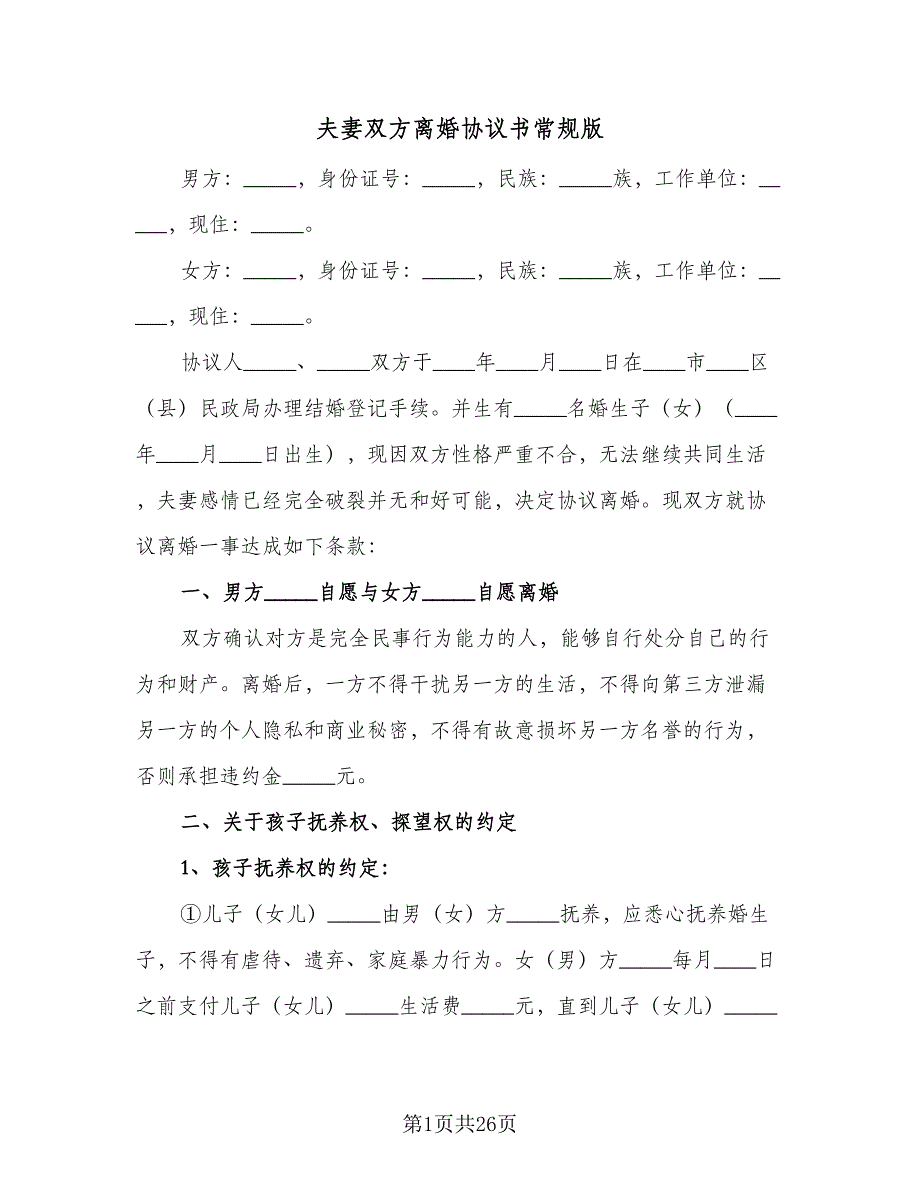 夫妻双方离婚协议书常规版
男方：_____，身份证号：_____，民族：_____族，工作单位：__
___，现住：_____。
女方：_____，身份证号：_____，民族：_____族，工作单位：__
___，现住：_____。
协议人_____、_____双方于____年____月____日在____市____区
（县）民政局办理结婚登记手续。并生有_____名婚生子（女）（____
年____月____日出生），现因双方性格严重不合，无法继续共同生活
，夫妻感情已经完全破裂并无和好可能，决定协议离婚。现双方就协
议离婚一事达成如下条款：
一、男方_____自愿与女方_____自愿离婚
双方确认对方是完全民事行为能力的人，能够自行处分自己的行
为和财产。离婚后，一方不得干扰另一方的生活，不得向第三方泄漏
另一方的个人隐私和商业秘密，不得有故意损坏另一方名誉的行为，
否则承担违约金_____元。
二、关于孩子抚养权、探望权的约定
1、孩子抚养权的约定：
①儿子（女儿）_____由男（女）方_____抚养，应悉心抚养婚生
子，不得有虐待、遗弃、家庭暴力行为。女（男）方_____每月____日
之前支付儿子（女儿）_____生活费_____元，直到儿子（女儿）_____
第1页共26页